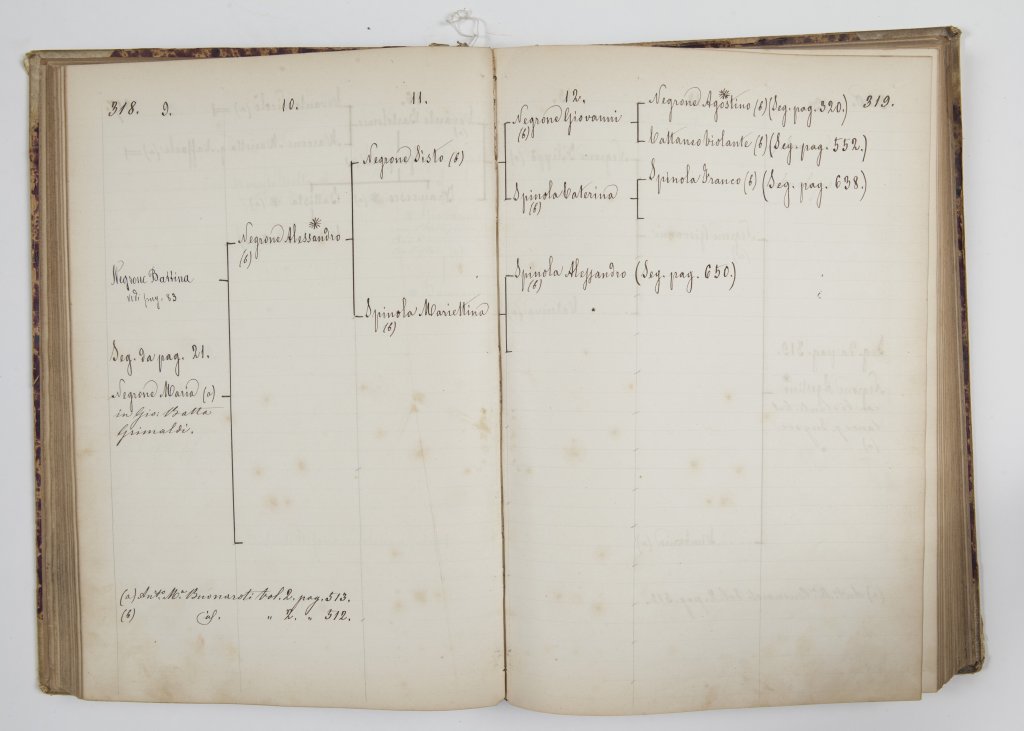 318. 9. 10. 11. 12. 319.
Negrone Agostino (b) (Seg. pag. 320.)
Negrone Giovanni
(b)
Cattaneo Violante (b) (Seg. pag. 552.)
Negrone Sisto (b)
Spinola Franco (b) (Seg. pag. 638.)
Spinola Caterina
(b)
Negrone Alessandro
(b)
Negrone Battina
vedi pag. 83
Spinola Alessandro (Seg. pag. 650.)
(b)
Spinola Mariettina
(b)
Seg. da pag. 21.
Negrone Maria (a)
in Gio: Batta
Grimaldi.
(a) Ant.o M.a Buonaroti Vol. 2. pag. 313.
(b) id. " 2. " 312.